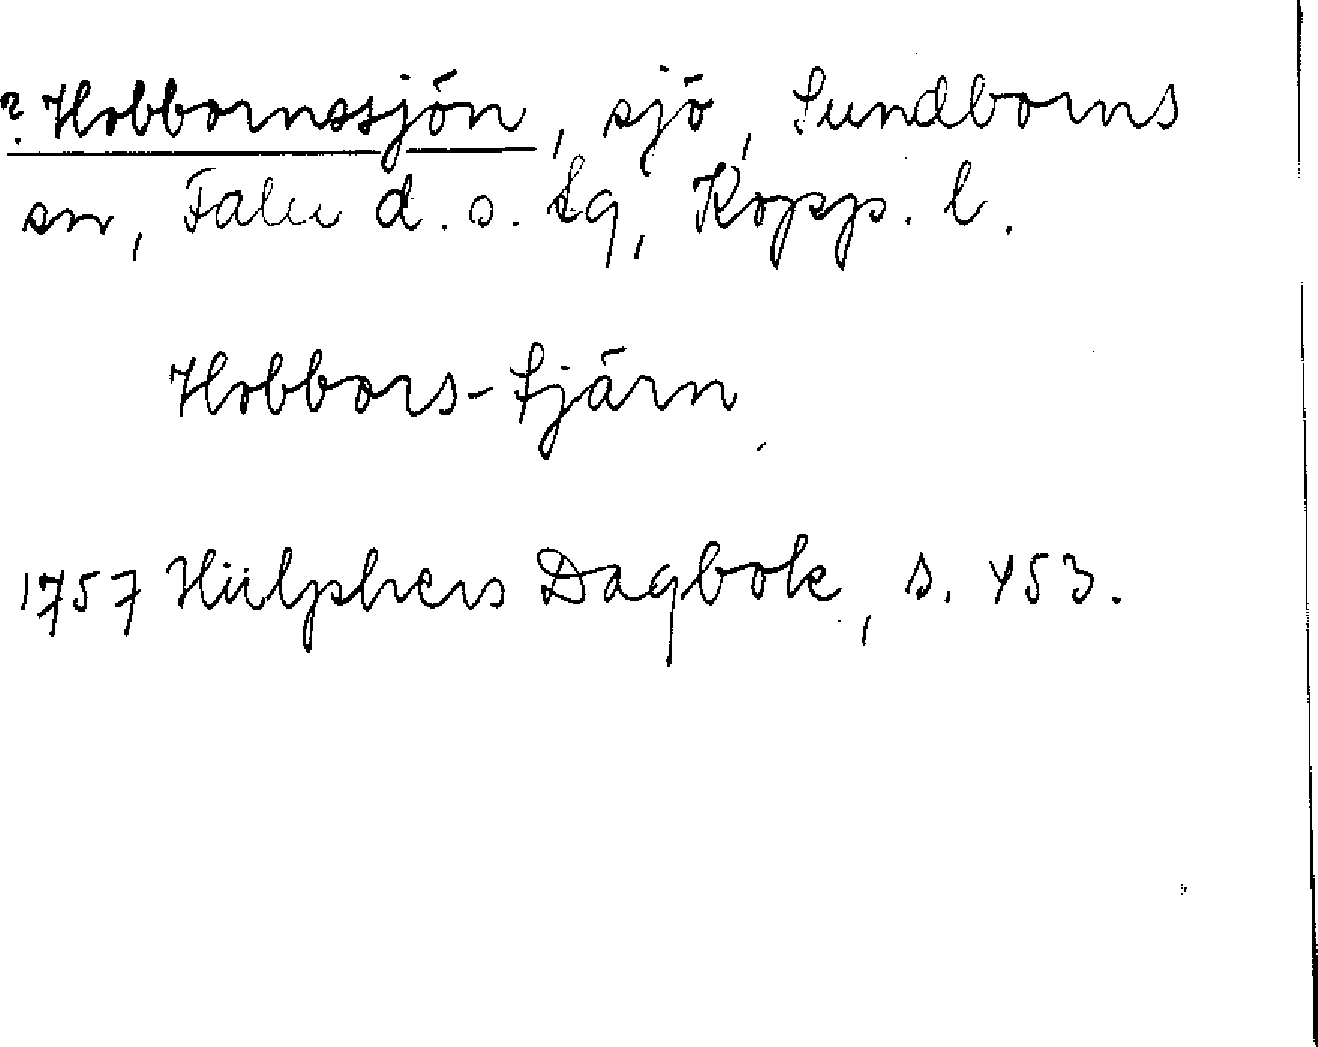 ? Hobbornssjön, sjö, Sundborns
sn, Falu d. s. tg, Kopp. l.
Hobbors-tjärn
1757 Hülphers Dagbok, s. 453.